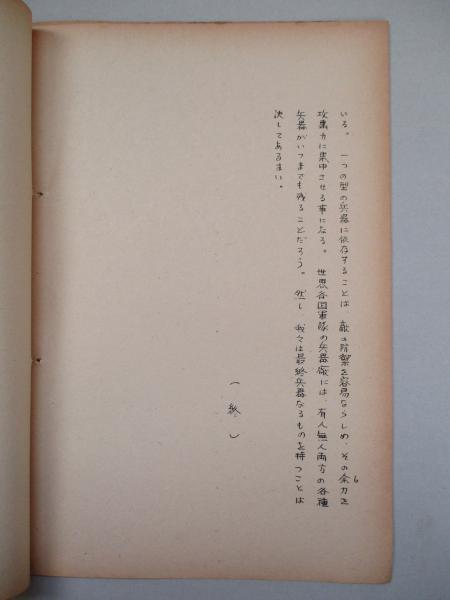 いる。 一つの型の兵器に依存することは、敵の防禦を容易ならしめ、その余力を
攻撃力に集中させる事になる。 世界各国軍隊の兵器廠には、有人無人両方の各種
兵器がいつまでも残ることだろう。 然し、我々は最終兵器なるものを持つことは
決してあるまい。
(終)
6